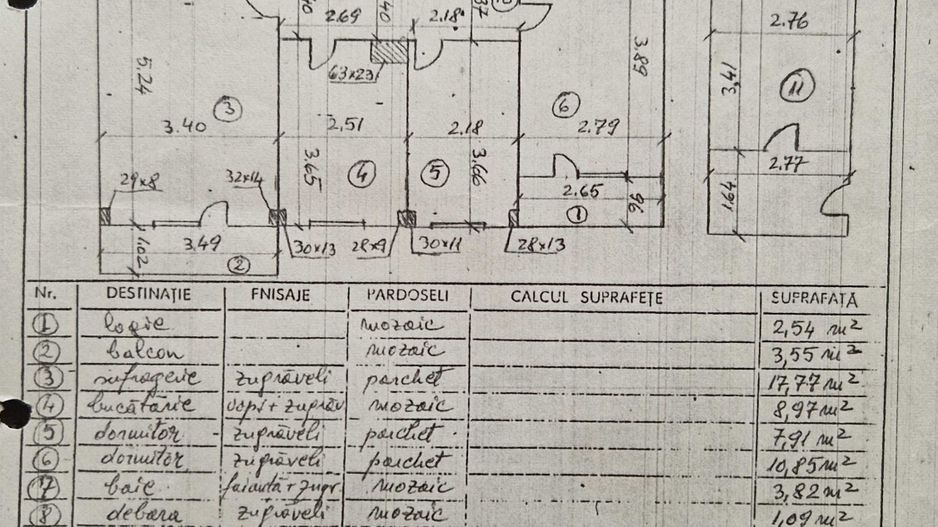 2.69
40
2.18
37
2.76
5.24
63x23
3.89
3,41
3
6
11
3.40
2,51
2.18
2.79
3.65
4
5
3.66
2.77
29x8
32x14
2.65
96
1
1,64
1,02
3,49
2
30x13
28x9
30x11
28x13
Nr. DESTINAȚIE FNISAJE PARDOSELI CALCUL SUPRAFEȚE SUPRAFAȚĂ
1 logie mozaic 2,54 m²
2 balcon mozaic 3,55 m²
3 sufragerie zugrăveli parchet 17,77 m²
4 bucătărie vops+zugrăv mozaic 8,97 m²
5 dormitor zugrăveli parchet 7,91 m²
6 dormitor zugrăveli parchet 10,85 m²
7 baie faianță+zugr. mozaic 3,82 m²
8 debara zugrăveli mozaic 1,09 m²